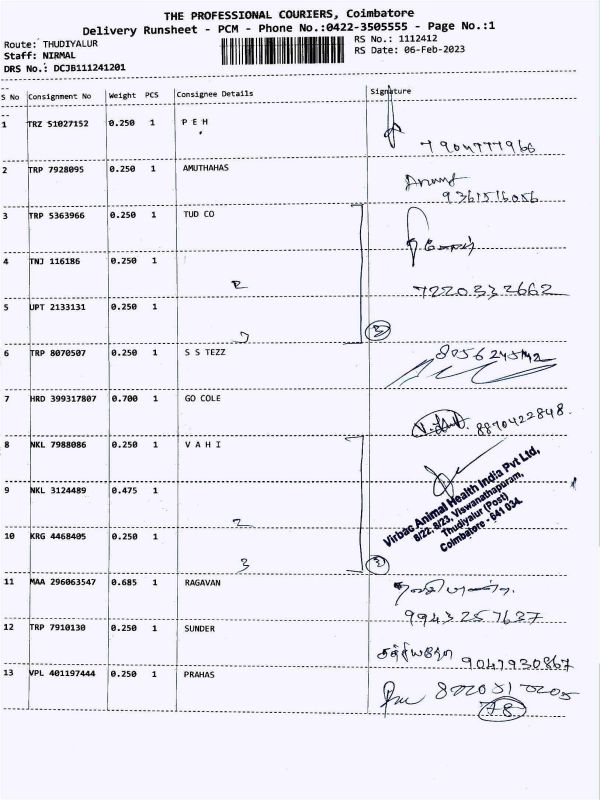 THE PROFESSIONAL COURIERS, Coimbatore
Delivery Runsheet - PCM - Phone No.:0422-3505555 - Page No.:1
Route: THUDIYALUR
Staff: NIRMAL
DRS No.: DCJB111241201
RS No.: 1112412
RS Date: 06-Feb-2023
S No Consignment No Weight PCS Consignee Details Signature
1 TRZ 51027152 0.250 1 P E H
7904777966
2 TRP 7928095 0.250 1 AMUTHAHAS
9361516056
3 TRP 5363966 0.250 1 TUD CO
4 TNJ 116186 0.250 1
2
7220332662
5 UPT 2133131 0.250 1
3
6 TRP 8070507 0.250 1 S S TEZZ
8056245142
7 HRD 399317807 0.700 1 GO COLE
8870422848.
8 NKL 7988086 0.250 1 V A H I
Virbac Animal Health India Pvt Ltd,
8/22, 8/23, Viswanathapuram,
Thudiyalur (Post)
Coimbatore - 641 034.
9 NKL 3124489 0.475 1
2
10 KRG 4468405 0.250 1
3
11 MAA 296063547 0.685 1 RAGAVAN
9943257637
12 TRP 7910130 0.250 1 SUNDER
9047930867
13 VPL 401197444 0.250 1 PRAHAS
8220517205